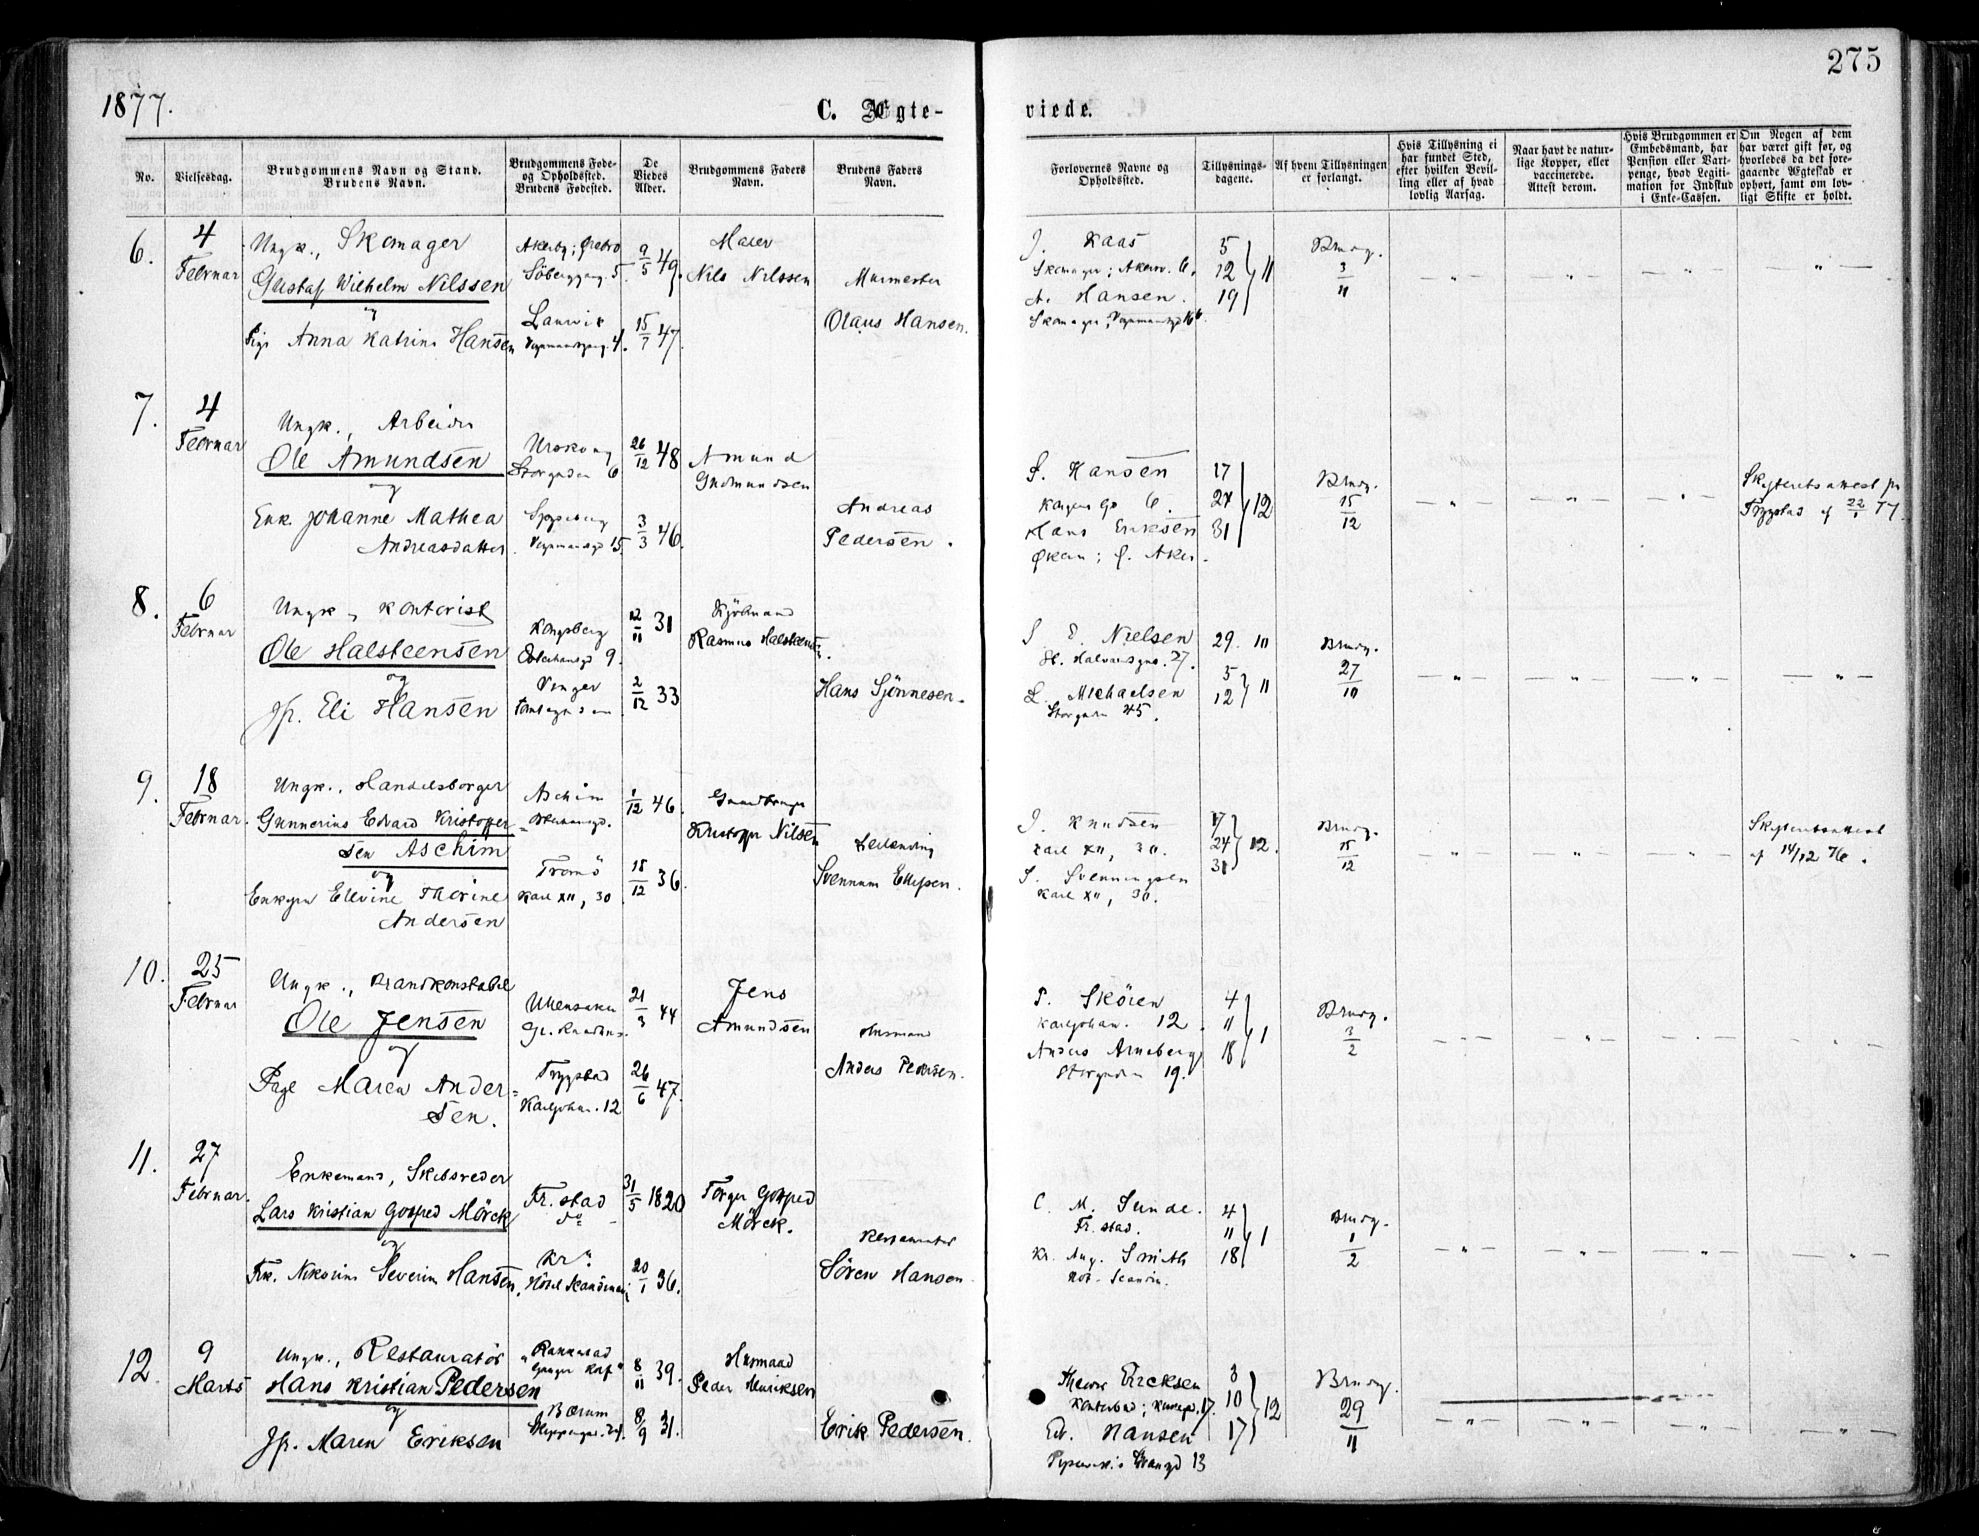 275
1877.
C. Ægte-
viede.
No.
Vielsesdag.
Brudgommens Navn og Stand.
Brudens Navn.
Brudgommens Føde-
og Opholdssted.
Brudens Fødested.
De
Viedes
Alder.
Brudgommens Faders
Navn.
Brudens Faders
Navn.
Forlovernes Navne og
Opholdssted.
Tillysnings-
dagene.
Af hvem Tillysningen
er forlangt.
Hvis Tillysning ei
har fundet Sted,
efter hvilken Bevil-
ling eller af hvad
lovlig Aarsag.
Naar havt de natur-
lige Kopper, eller
vaccinerede.
Attest derom.
Hvis Brudgommen er
Embedsmand, har
Pension eller Vart-
penge, hvad Legiti-
mation for Indskud
i Enke-Cassen.
Om Nogen af dem
har været gift før, og
hvorledes da det fore-
gaaende Ægteskab er
ophørt, samt om lov-
ligt Skifte er holdt.
6.
4
Februar
Ungk., Skomager
Gustaf Wilhelm Nilssen
og
Pige Anna Katrine Hansen
Akerby; Örebro
5.
Laurvik
4.
9/5 49.
15/7 47.
Maler
Nils Nilssen
Murmester
Olaus Hansen.
J. Kaas
Skomager; Akersv. 6.
A. Hansen.
Skomager,
5
12
19
11
Brudg.
3/11
7.
4
Februar
Ungk., Arbeider
Ole Amundsen
og
Enk. Johanne Mathea
Andreasdatter
Urskoug
Storgaden 6
15
26/12 48
3/3 46.
Amund
Gudmundsen
Andreas
Pedersen.
S. Hansen
6.
Hans Eriksen
Økern; Ø. Aker.
17
24
31
12
Brudg.
15/12
Skifteretsattest fra
Trygstad af 22/1 77.
8.
6
Februar
Ungk., Kontorist
Ole Halsteensen
og
Jfr. Eli Hansen
Kongsberg
9.
Vinger
12/11 31
2/12 33
Kjöbmand
Rasmus Halsteensen.
Hans Sjönnesen.
S E. Nielsen
St. Halvardsgad. 27.
L. Michaelsen
Storgaden 45.
29. 10
5
12
11
Brudg.
27/10
9.
18
Februar.
Ungk., Handelsborger
Gunnerius Edvard Kristoffer-
sen Aschim
og
Enkefru Ellevine Thorine
Andersen
Aschim
Tromö
Karl XII, 30.
1/12 46.
15/12 36.
Gaardbruger
Kristoffer Nilsen
Leilending
Svennum Ellefsen.
J. Knudsen
Karl XII, 30.
S. Svenningsen
Karl XII, 30.
17
24
31
12.
Brudg.
15/12
Skifteretsattest
af 14/12 76.
10.
25
Februar
Ungk., Brandkonstabel
Ole Jensen
og
Pige Maren Ander-
sen.
Ullensaker
Trygstad
Karljohan. 12
21/3 44
26/6 47.
Jens
Amundsen
Husmand
Anders Pedersen.
P. Skören
Karljohan. 12.
Anders Arneberg
Storgaden 19.
4
11
18
1
Brudg.
3/2
11.
27
Februar.
Enkemand, Skibsreder
Lars Kristian Gotfred Mörck
og
Frk. Nikoline Severine Hansen.
Fr.stad
do
Kra
Hotel Skandinavi
31/5 1820
20/1 36.
Torger Gotfred
Mörck.
Sören Hansen.
C. M. Sunde.
Fr.stad.
Kr. Aug. Smith
Hot. Scandin.
4
11
18
1
Brudg.
1/2
12.
9
Marts
Ungk., Restauratör
Hans Kristian Pedersen
og
Jfr. Maren Eriksen
Bærum
24.
8/11 39.
8/9 31.
Husmand
Peder Henriksen
Erik Pedersen.
Ericksen
17.
Ed. Hansen
13
3
10
17
12
Brudg.
29/11